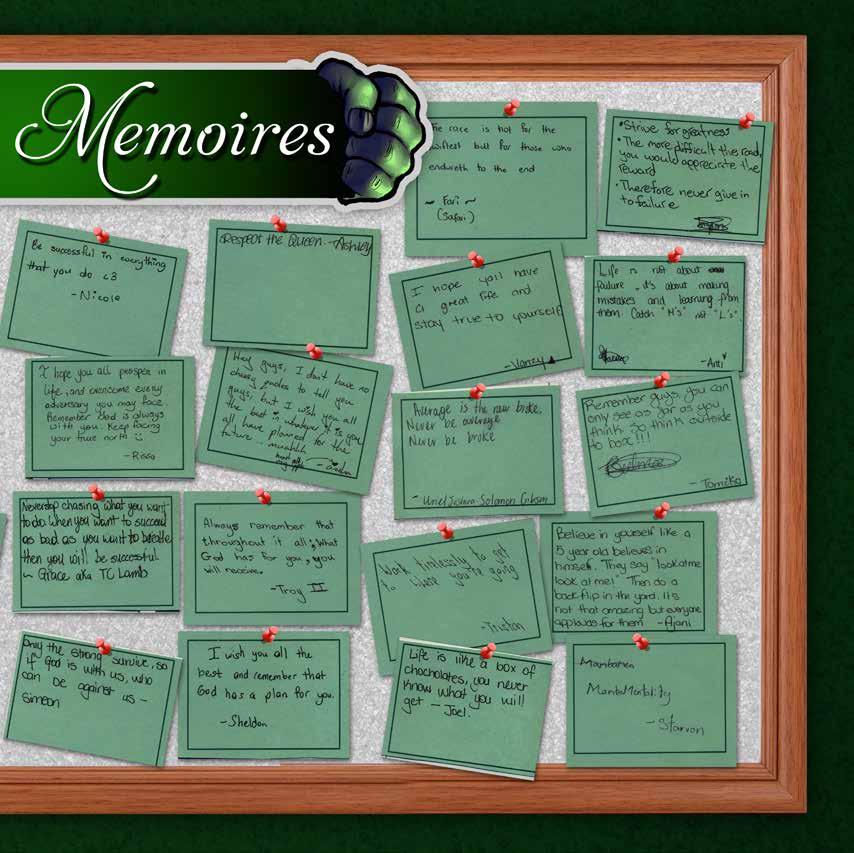 Memoires
The race is not for the
swiftest but for those who
endureth to the end
~ Fari ~
(Safari)
•Strive for greatness
•The more difficult the road,
you would appreciate the
reward
•Therefore never give in
to failure
Be successful in everything
that you do <3
-Nicole
Respect the Queen. -Ashley
I hope you'll have
a great life and
stay true to yourself
-Vanzy
Life is not about
failure, it's about making
mistakes and learning from
them. Catch "M's" not "L's".
-Anti
I hope you all prosper in
life, and overcome every
adversary you may face.
Remember God is always
with you. Keep facing
your true north
-Rissa
Hey guys, I don't have no
cheesy quotes to tell you
guys, but I wish you all
the best in whatever it is you
all have planned for the
future
Average is the new broke.
Never be average
Never be broke
- Uriel Joshua-Solomon Gibson
Remember guys, you can
only see as far as you
think. So think outside
to box!!!
- Tomika
Never stop chasing what you want
to do. When you want to succeed
as bad as you want to breathe
then you will be successful
~ Grace aka TC Lamb
Always remember that
throughout it all, what
God has for you, you
will receive.
-Troy II
Work tirelessly to get
to where you're going
-Tristan
Believe in yourself like a
5 year old believes in
himself. They say "look at me
look at me!" Then do a
backflip in the yard. It's
not that amazing but everyone
applauds for them -Ajani
Only the strong survive, so
if God is with us, who
can be against us -
Simeon
I wish you all the
best and remember that
God has a plan for you.
-Sheldon
Life is like a box of
chocholates, you never
know what you will
get - Joel.
MambaMentality
-Starvon